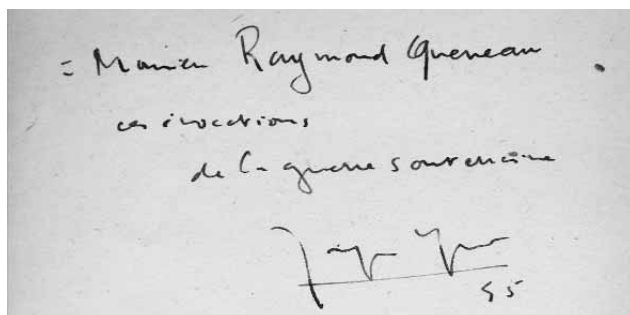 à Monsieur Raymond Queneau
ces évocations
de la guerre souterraine
55